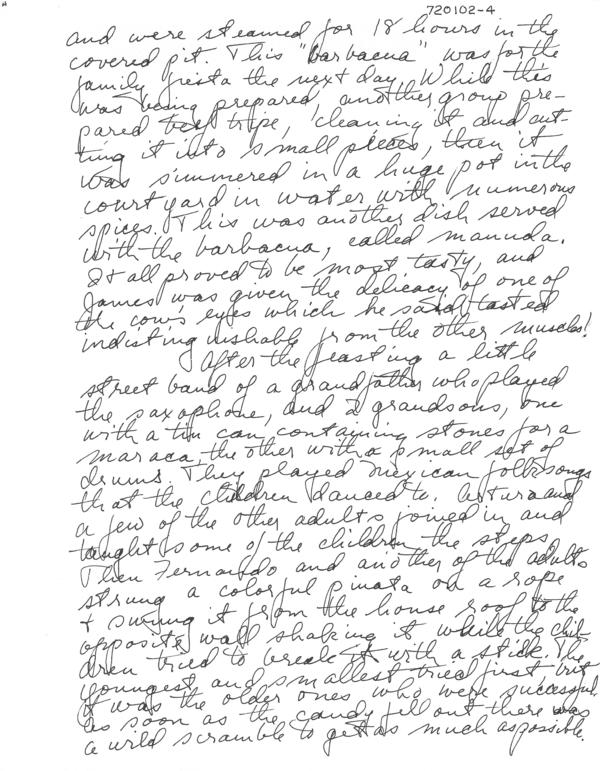 720102-4
and were steamed for 18 hours in the
covered pit. This "barbacua" was for the
family fiesta the next day. While this
was being prepared, another group pre-
pared beef tripe, cleaning it and cut-
ting it into small pieces, then it
was simmered in a huge pot in the
courtyard in water with numerous
spices. This was another dish served
with the barbacua, called manuda.
It all proved to be most tasty, and
James was given the delicacy of one of
the cow's eyes which he said tasted
indistinguishable from the other muscles!
After the feasting a little
street band of a grandfather who played
the saxophone, and 2 grandsons, one
with a tin can containing stones for a
maraca, the other with a small set of
drums. They played Mexican folk songs
that the children danced to. Arturo and
a few of the other adults joined in and
taught some of the children the steps.
Then Fernando and another of the adults
strung a colorful pinata on a rope
+ swung it from the house roof to the
opposite wall shaking it while the chil-
dren tried to break it with a stick. The
youngest and smallest tried first but
it was the older ones who were successful.
As soon as the candy fell out there was
a wild scramble to get as much as possible.